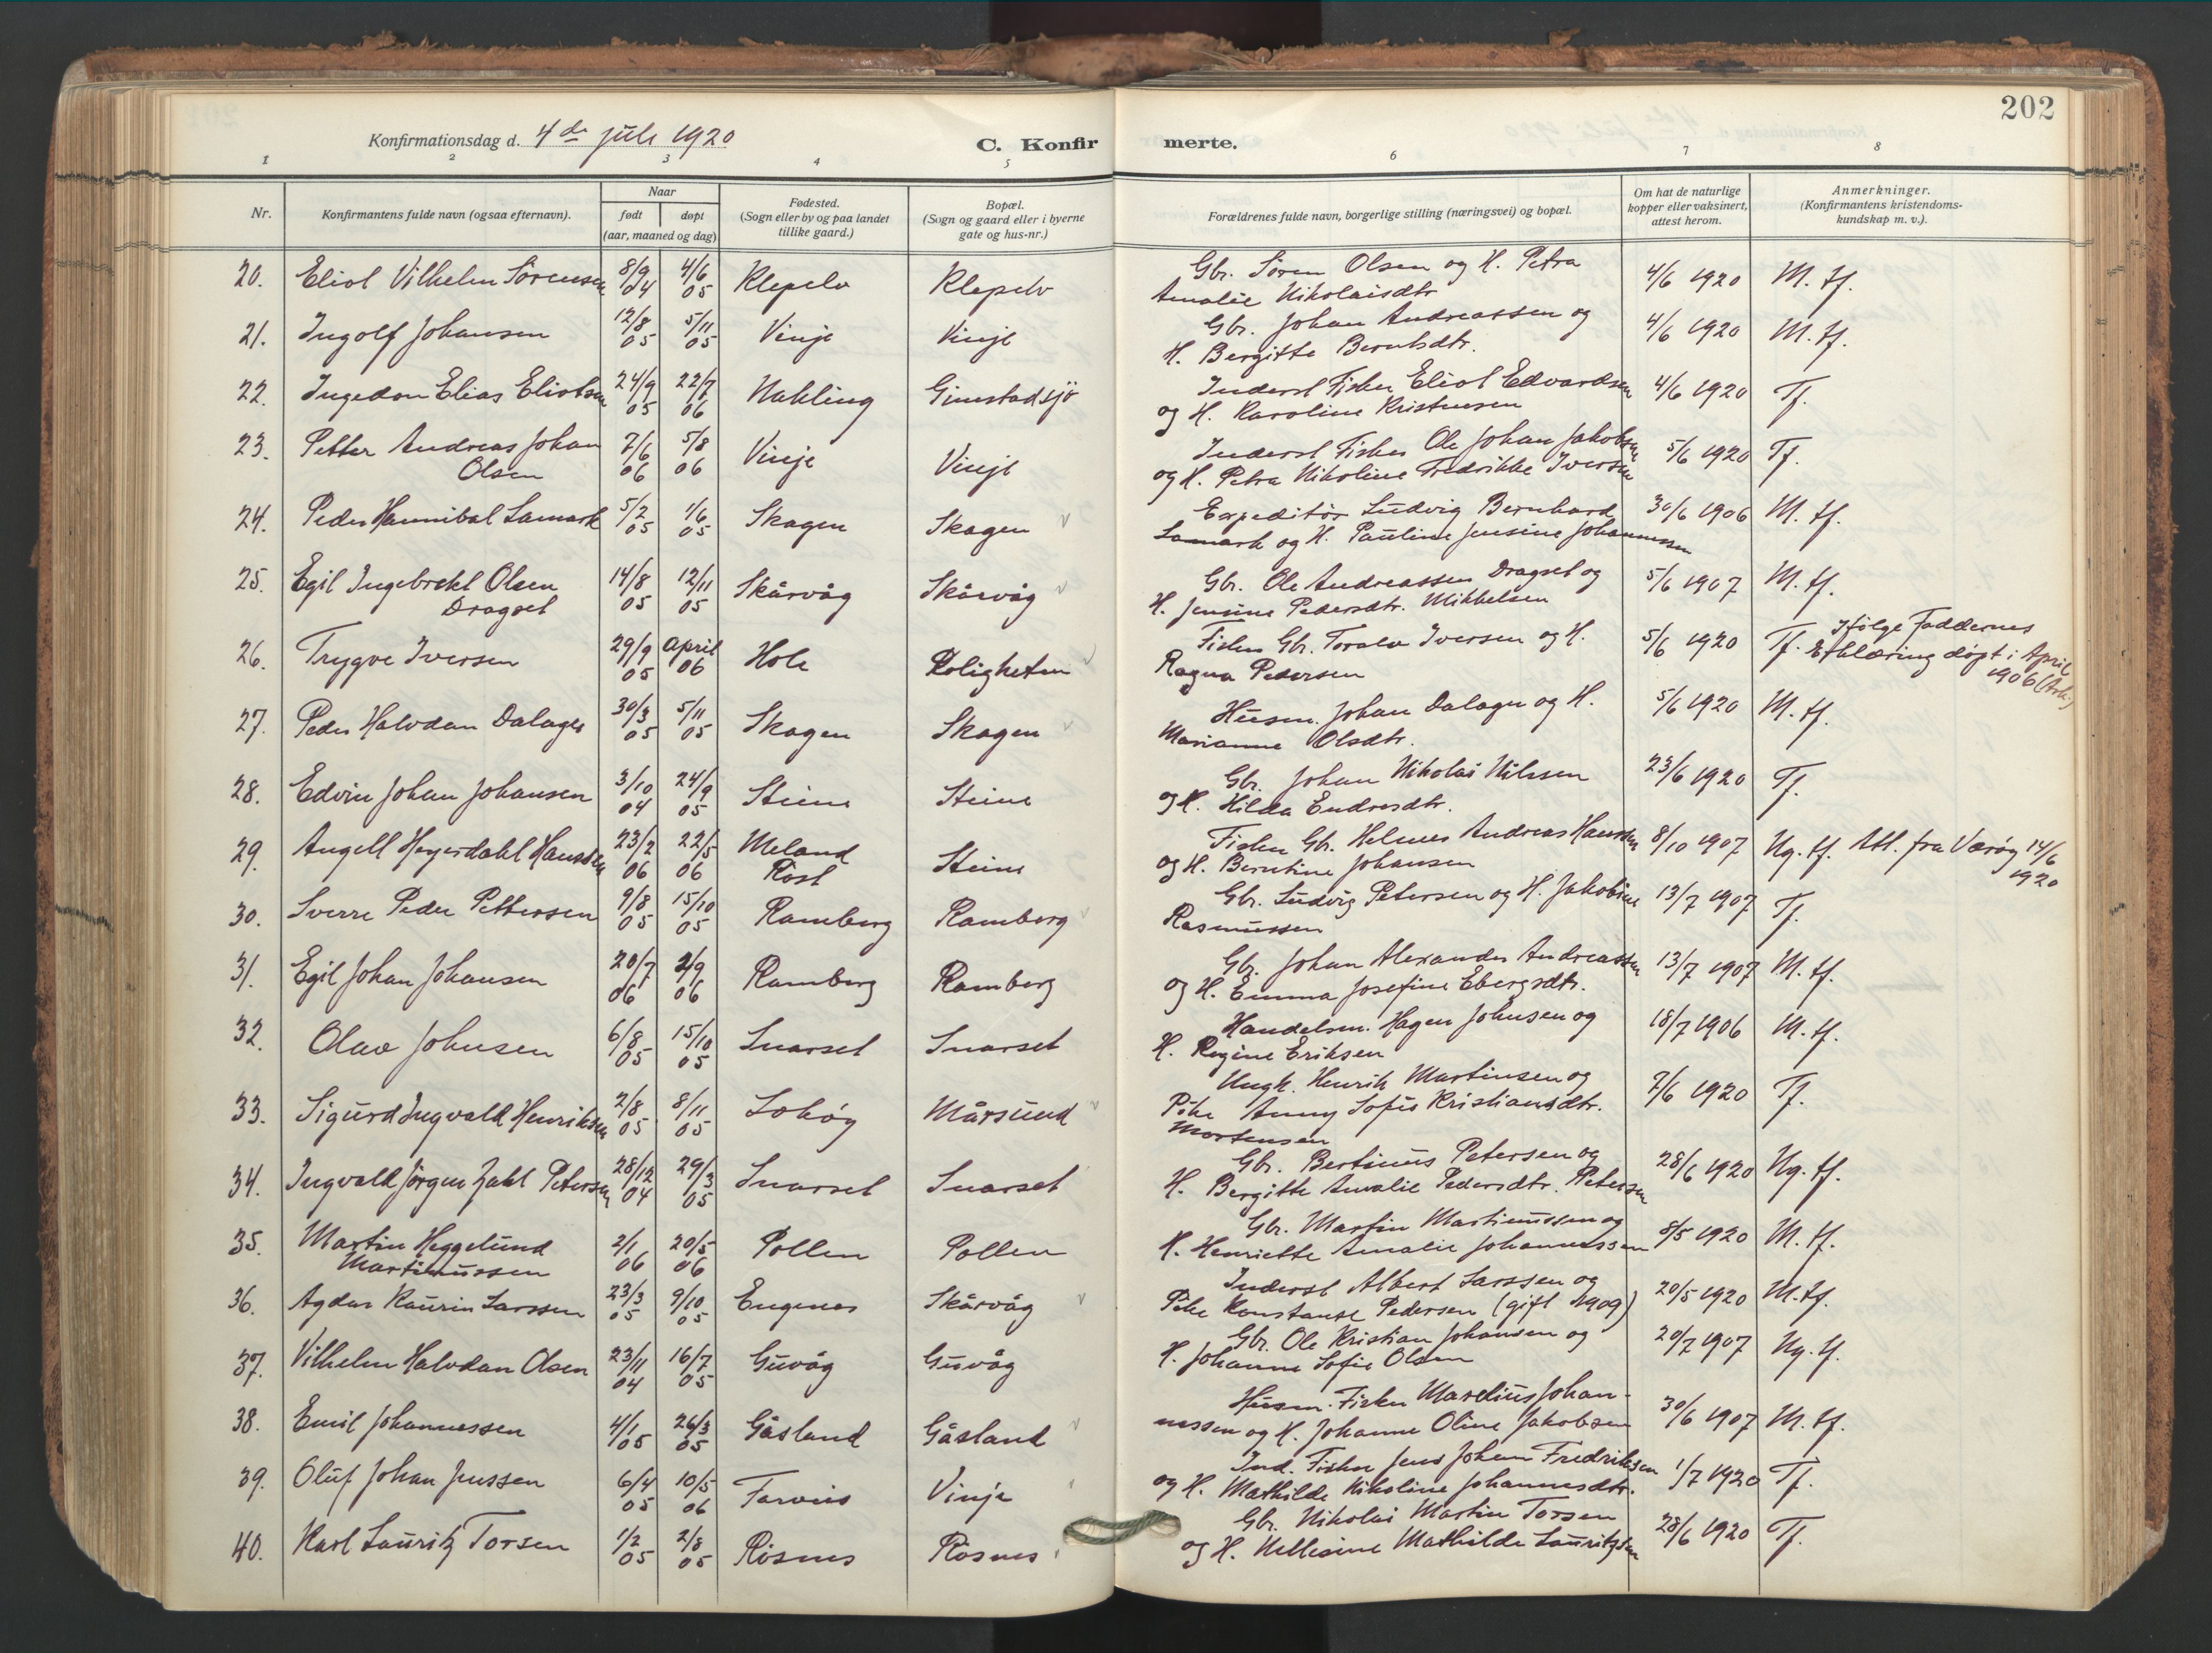 202
Konfirmationsdag d. 4de juli 1920
C. Konfir
merte.
1 2 3 4 5 6 7 8
Nr.
Konfirmantens fulde navn (ogsaa efternavn).
Naar
født døpt
(aar, maaned og dag)
Fødested.
(Sogn eller by og paa landet
tillike gaard.)
Bopæl.
(Sogn og gaard eller i byerne
gate og hus-nr.)
Forældrenes fulde navn, borgerlige stilling (næringsvei) og bopæl.
Om hat de naturlige
kopper eller vaksinert,
attest herom.
Anmerkninger.
(Konfirmantens kristendoms-
kundskap m. v.).
20. Eliol Vilhelm Sörensen 8/9 04 4/6 05 Klepelv Klepelv Gbr. Sören Olsen og H. Petra 4/6 1920 M. tf.
Amalie Nikolaisdtr
21. Ingolf Johansen 12/8 05 5/11 05 Vinje Vinje Gbr. Johan Andreassen og 4/6 1920 M. tf.
H. Bergitte Berntsdtr.
22. Ingedon Elias Eliotsen 24/9 05 22/7 06 Nakling Gimstadsjö Inderst Fisker Eliot Edvardsen 4/6 1920 Tf.
og H. Karoline Kristensen
23. Petter Andreas Johan 7/6 06 5/8 06 Vinje Vinje Inderst Fisker Ole Johan Jakobsen 5/6 1920 Tf.
Olsen og H. Petra Nikoline Fredrikke Iversen
24. Peder Hannibal Lamark 5/2 05 1/6 05 Skagen Skagen Expeditör Ludvig Bernhard 30/6 1906 M. tf.
Lamark og H. Pauline Jensine Johannessen
25. Egil Ingebrekt Olsen 14/8 05 12/11 05 Skårvåg Skårvåg Gbr. Ole Andreassen Dragset og 5/6 1907 M. tf.
Dragset H. Jensine Pedersdtr. Mikkelsen
26. Trygve Iversen 29/9 05 April 06 Hole Roligheten Fisker Gbr. Toralv Iversen og H. 5/6 1920 Tf. Ifölge Faddernes
Ragna Pedersen Erklæring döpt i April
1906
27. Peder Halvdan Dalager 30/3 05 5/11 05 Skagen Skagen Husm. Johan Dalager og H. 5/6 1920 M. tf.
Marianne Olsdtr.
28. Edvin Johan Johansen 3/10 04 24/9 05 Steine Steine Gbr. Johan Nikolai Nilssen 23/6 1920 Tf.
og H. Hilda Endresdtr.
29. Angell Heyerdahl Hanssen 23/2 06 22/5 06 Meland Steine Fisker Gbr. Helmer Andreas Hanssen 8/10 1907 Ng. tf. Att. fra Værøy 14/6
Röst og H. Berntine Johansen 1920
30. Sverre Peder Pettersen 9/8 05 15/10 05 Ramberg Ramberg Gbr. Ludvig Petersen og H. Jakobine 13/7 1907 Tf.
Rasmussen
31. Egil Johan Johansen 20/7 06 2/9 06 Ramberg Ramberg Gbr. Johan Alexander Andreassen 13/7 1907 M. tf.
og H. Emma Josefine Ebergsdtr.
32. Olav Johnsen 6/8 05 15/10 05 Snarset Snarset Handelsm. Hagen Johnsen og 18/7 1906 M. tf.
H. Regine Eriksen
33. Sigurd Ingvald Henriksen 2/8 05 8/11 05 Lohöy Mårsund Ungk. Henrik Martinsen og 7/6 1920 Tf.
Pike Anny Sofie Kristiansdtr.
Mortensen
34. Ingvald Jörgen Zahl Petersen 28/12 04 29/3 05 Snarset Snarset Gbr. Bertinus Petersen og 28/6 1920 Ng. tf.
H. Bergitte Amalie Pedersdtr. Petersen
35. Martin Heggelund 2/1 06 20/5 06 Pollen Pollen Gbr. Martin Martinussen og 8/5 1920 M. tf.
Martinussen H. Henriette Amalie Johannessen
36. Agdar Kaurin Larssen 23/3 05 9/10 05 Engenes Skårvåg Inderst Albert Larssen og 20/5 1920 M. tf.
Pike Konstanse Pedersen (gift 1909)
37. Vilhelm Halvdan Olsen 23/11 04 16/7 05 Guvåg Guvåg Gbr. Ole Kristian Johansen og 20/7 1907 Ng. tf.
H. Johanne Sofie Olsen
38. Emil Johannessen 4/1 05 26/3 05 Gåsland Gåsland Husm. Fisker Marelius Johan- 30/6 1907 M. tf.
nessen og H. Johanne Oline Jakobsen
39. Oluf Johan Jenssen 6/4 05 10/5 06 Farvis Vinje Ind. Fisker Jens Johan Fredriksen 1/7 1920 Tf.
og H. Mathilde Nikoline Johannesdtr.
40. Karl Lauritz Torsen 1/2 05 2/8 05 Rösnes Rösnes Gbr. Nikolai Martin Torsen 28/6 1920 Tf.
og H. Nellesine Mathilde Lauritzsen